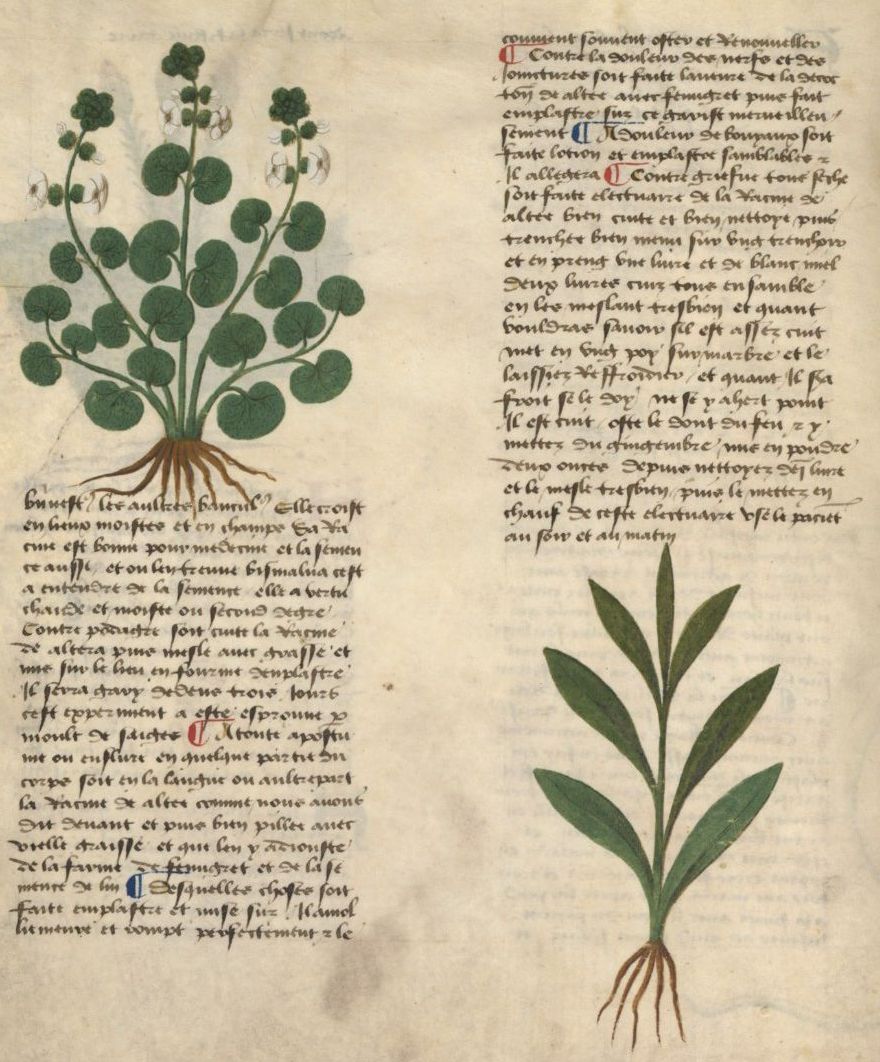 bunest les aultres bancul Elle croist
en lieux moistes et en champs Sa Ra
cine est bonne pour medecine et la semen
ce aussi et ou len treuve bismalua cest
a entendre de la semence elle a vertu
chaude et moiste ou second degre
Contre podagre soit cuite la Racine
de altea puis mesle avec gresse et
mis sur le lieu en fourme demplastre
Il sera gary dedens trois Jours
cest experiment a este esprouue p
moult de saiges ¶ A toute apostu
me ou enflure en quelque partie du
corps soit en la langue ou aultre part
la Racine de altee comme nous auons
dit deuant et puis bien pillee auec
vielle graisse et que len y adiouste
de la farine de fenugret et de la se
mence de lin ¶ Desquelles choses soit
faite emplastre et mise sur Il amol
lie meure et rompt perfectement ⁊ le
conuient souuent oster et Renouueller
¶ Contre la douleur des nerfs et des
Jointures soit faite laueure de la decoc
ton de altee auec fenugret puis fait
emplastre sur ce garist merueilleu
sement ¶ A douleur de boyaux soit
faite lotion et emplastre samblables ⁊
Il allegera ¶ Contre griefue tous seche
soit faite electuaire de la Racine de
altee bien cuite et bien nettoye puis
trenchee bien menu sur vng trenchoir
et en preng vne liure et de blanc miel
deux liures cuiz tous ensamble
en les meslant tresbien et quant
vouldras sauoir sil est assez cuit
met en vng poy sur marbre et le
laissiez Reffroidier et quant Il sera
froit se le doy ne se y ahert point
Il est cuit oste le dont du feu ⁊ y
mettez du gingembre mis en poudre
deux onces de pins nettoyez demi liure
et le mesle tresbien puis le mettez en
chauf de ceste electuaire vse le pacient
au soir et au matin